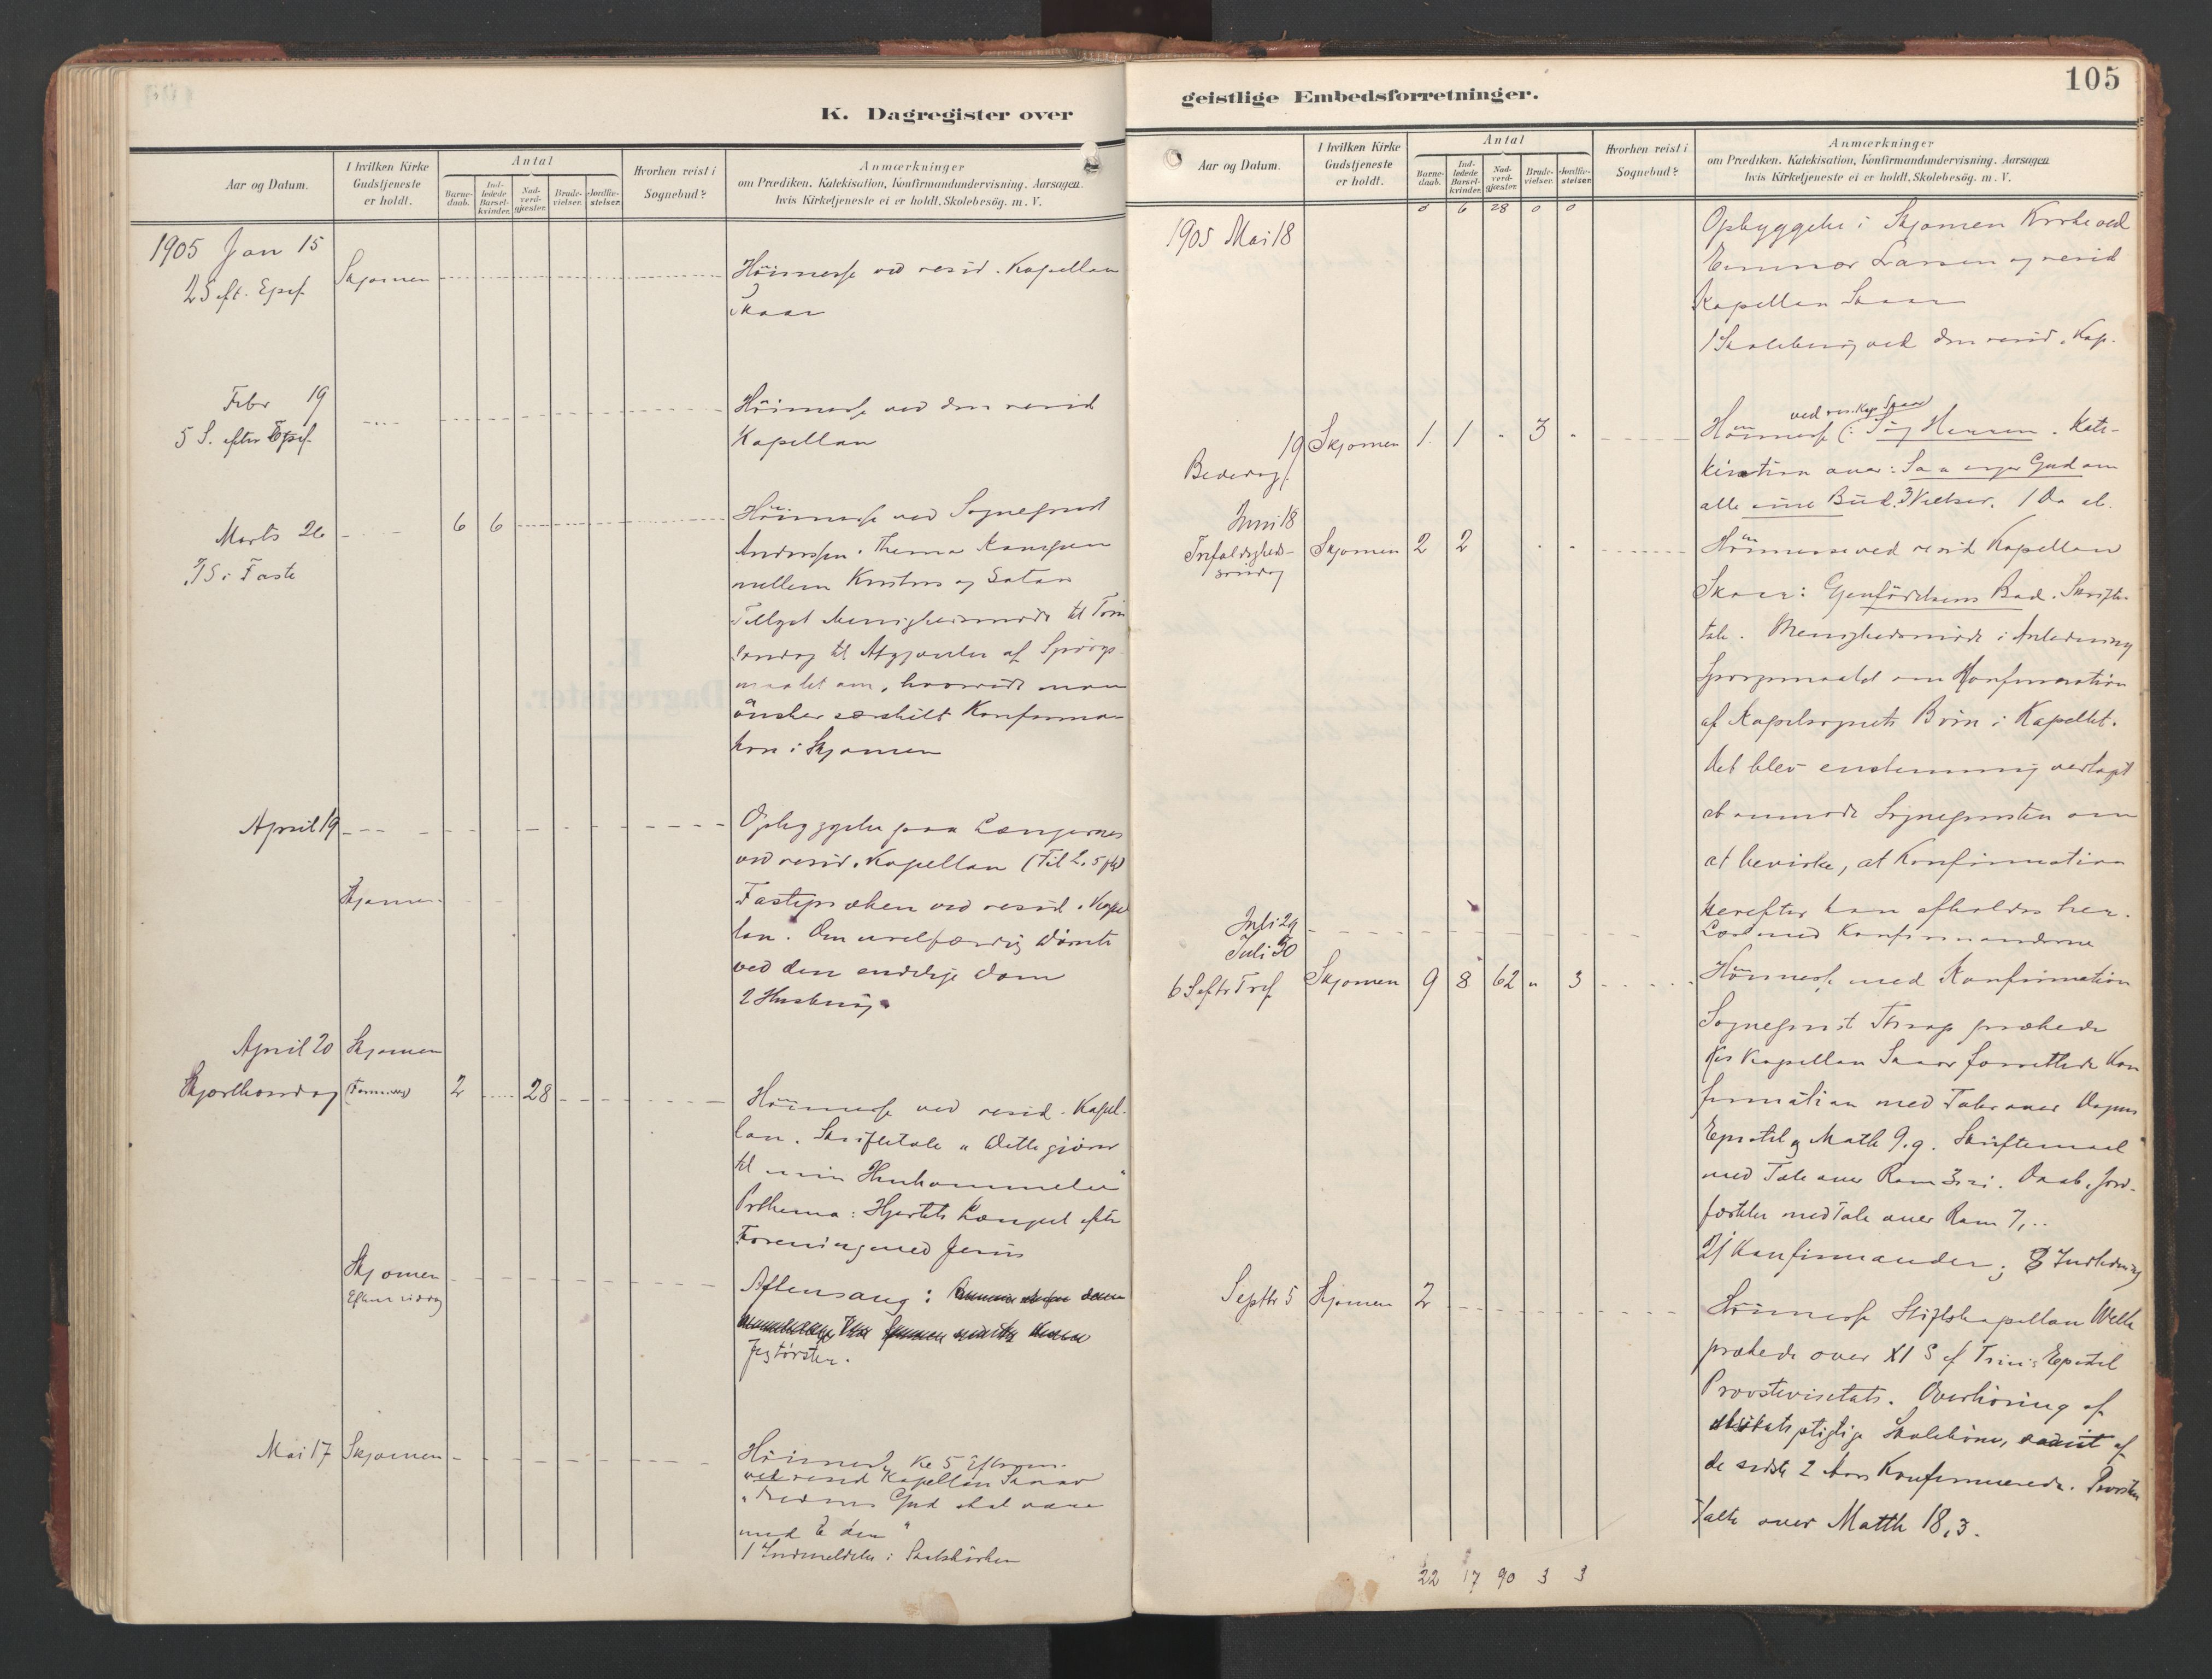 K. Dagregister over
Aar og Datum.
I hvilken Kirke
Gudstjeneste
er holdt.
Antal
Barne-
daab.
Ind-
ledede
Barsel-
kvinder.
Nad-
verd-
gjæster.
Brude-
vielser.
Jordfæ-
stelser.
Hvorhen reist i
Sognebud?
Anmærkninger
om Prædiken. Katekisation, Konfirmandundervisning. Aarsagen.
hvis Kirketjeneste ei er holdt. Skolebesög. m. V.
1905 Jan 15
2 S eft. Epif.
Skjomen
Höimesse ved resid. Kapellan
Skaar
Febr 19
5 S. efter Epif.
Höimesse ved den resid
Kapellan
Marts 26
S i Faste
6 6
Höimesse ved Sogneprest
Anderssen. Thema Kampen
mellem Kristus og Satan
Tillyst Menighedsmöde til
til Afgjörelse af Spörgs-
maalet om, hvorvidt man
önsker særskilt Konfirma-
tion i Skjomen
April 19
Opbyggelse paa
ved resid. Kapellan (Til
Skjomen
Fastepræken ved resid. Kapel
lan. Om uretfærdig dömte
ved den endelige dom
2 Husbesög.
April 20 Skjomen
Skjærthorsdag (Formid) 2 28
Höimesse ved resid. Kapel-
lan. Skriftetale "Dette gjörer
til min Ihukommelse"
Prthema: Hjertets Længsel efter
Forening med Jesus
Skjomen
Eftermiddag
Aftensang:
Jeg törster.
Mai 17 Skjomen
Höimesse Kl 5 Efterm.
ved resid Kapellan Skaar
"Fredens Gud skal være
med Eder"
1 Indmeldelse i Statskirken
geistlige Embedsforretninger.
105
Aar og Datum.
I hvilken Kirke
Gudstjeneste
er holdt.
Antal
Barne-
daab.
Ind-
ledede
Barsel-
kvinder.
Nad-
verd-
gjæster.
Brude-
vielser.
Jordfæ-
stelser.
Hvorhen reist i
Sognebud?
Anmærkninger
om Prædiken. Katekisation, Konfirmandundervisning. Aarsagen
hvis Kirketjeneste ei er holdt. Skolebesög. m. V.
6 28 0 0
1905 Mai 18
Opbyggelse i Skjomen Kirke ved
Larsen og resid
Kapellan Skaar
1 Skolebesög ved den resid. Kap.
ved res. Kap Skaar
19 Skjomen 1 1 3
Bededag
Höimesse Kate-
kisation over: Gud om
alle sine Bud. 3 Vielser. 1 Daab.
Juni 18
Trefoldigheds-
söndag
Skjomen 2 2
Höimesse ved resid Kapellan
Skaar: Gjenfödelsens Bad. Skrifte-
tale. Menighedsmöde i Anledning
Spörgsmaalet om Konfirmation
af Kapelsognets Börn i Kapellet.
Det blev enstemmig vedtaget
at anmode Sognepresten om
at bevirke, at Konfirmation
herefter kan afholdes her.
Juli 29
Læst med Konfirmanderne
Juli 30
6 S eftr Tref Skjomen 9 8 62 3
Höimesse med Konfirmation
Sogneprest prækede
Res Kapellan Skaar forrettede Kon
firmation med Tale over Dagens
Epistel og Math 9.9. Skriftemaal
med Tale over Rom Daab, Jord-
fæstelse med Tale over Rom 7,
21 Konfirmander; 8 Indledning
Septbr 5 Skjomen 2
Höimesse Stiftskapellan
prækede over XI S ef Trin: Epistel
Provstevisitats. Overhöring af
Skolebörn, af
de sidste 2 Aars Konfirmerede. Provsten
talte over Matth 18,3.
22 17 90 3 3